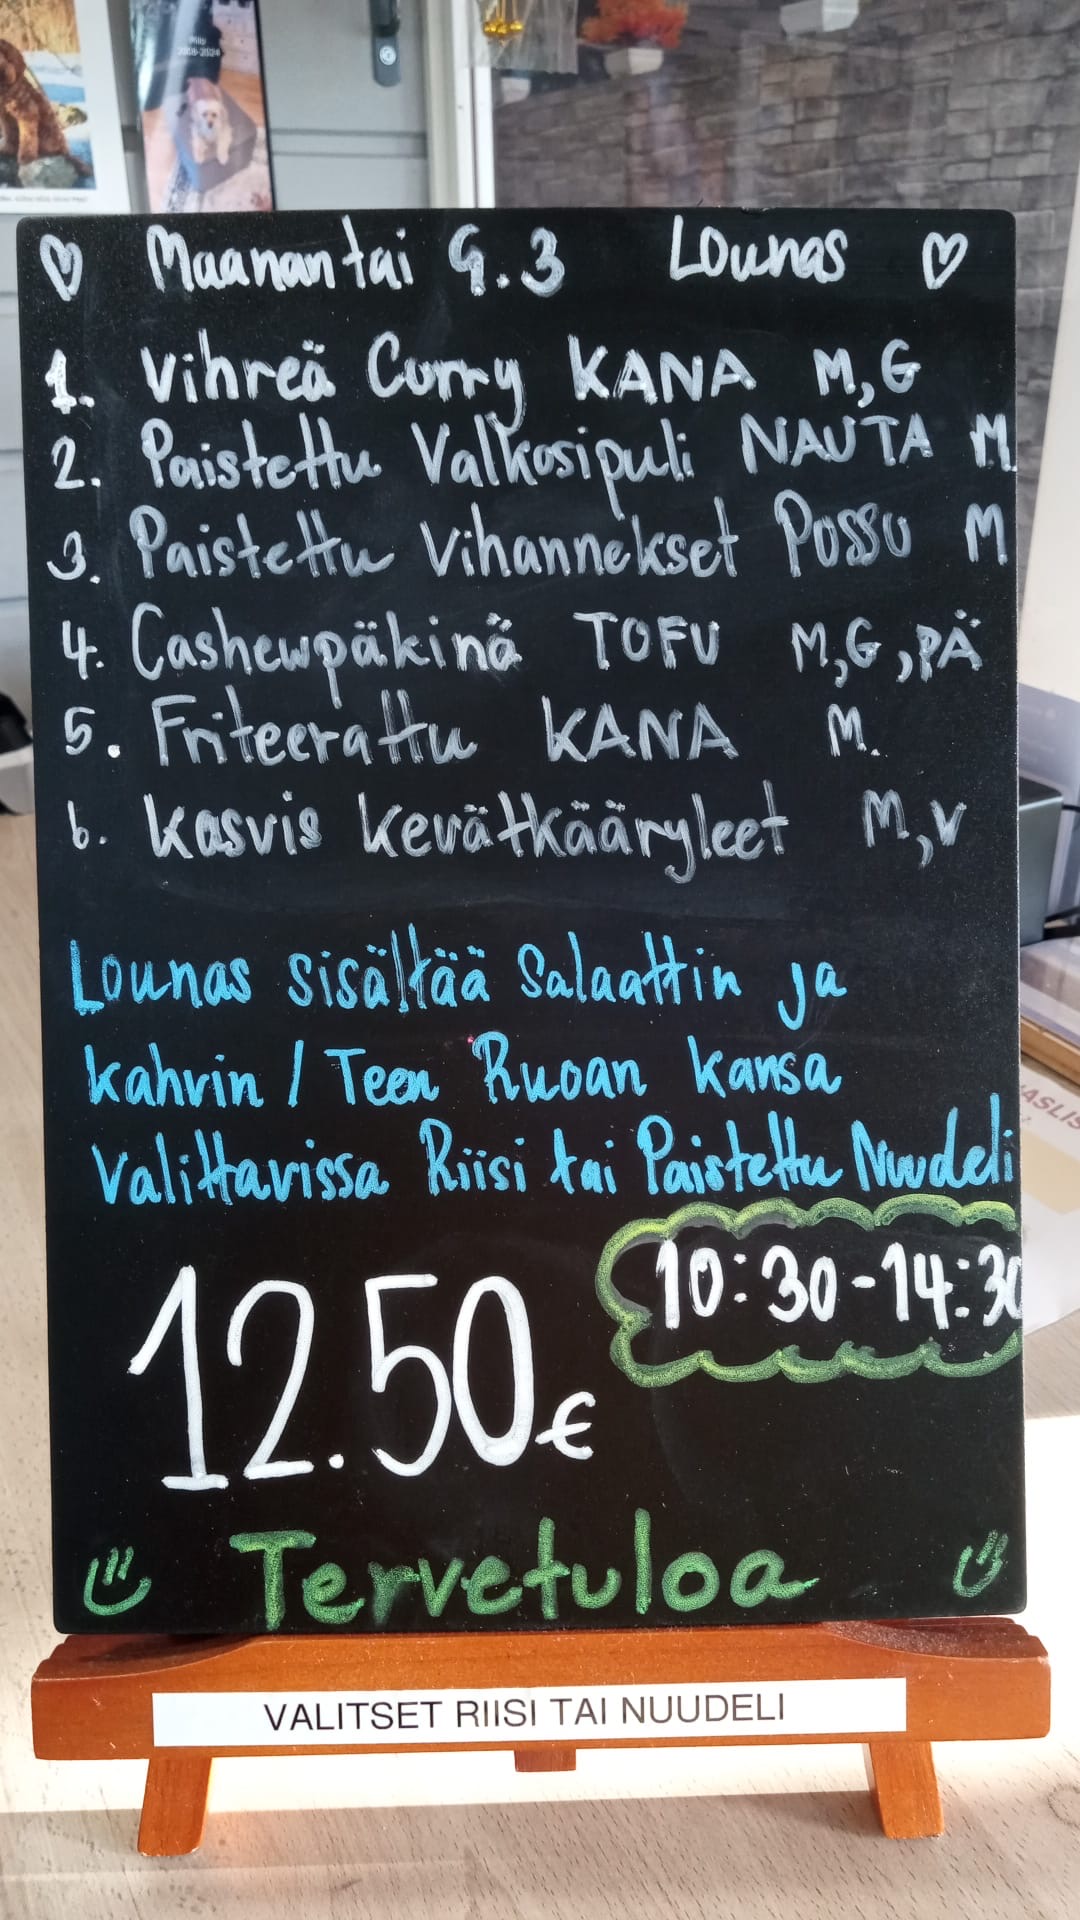 Milly
2008-2024
♡ Maanantai 9.3 Lounas ♡
1. Vihreä Curry KANA M,G
2. Paistettu Valkosipuli NAUTA M
3. Paistettu Vihannekset Possu M
4. Cashewpäkinä TOFU M,G,PÄ
5. Friteerattu KANA M.
6. Kasvis kevätkääryleet M,V
Lounas sisältää Salaattin ja
kahvin / Teen Ruoan kansa
Valittavissa Riisi tai Paistettu Nuudeli
10:30-14:30
12.50€
Tervetuloa
VALITSET RIISI TAI NUUDELI